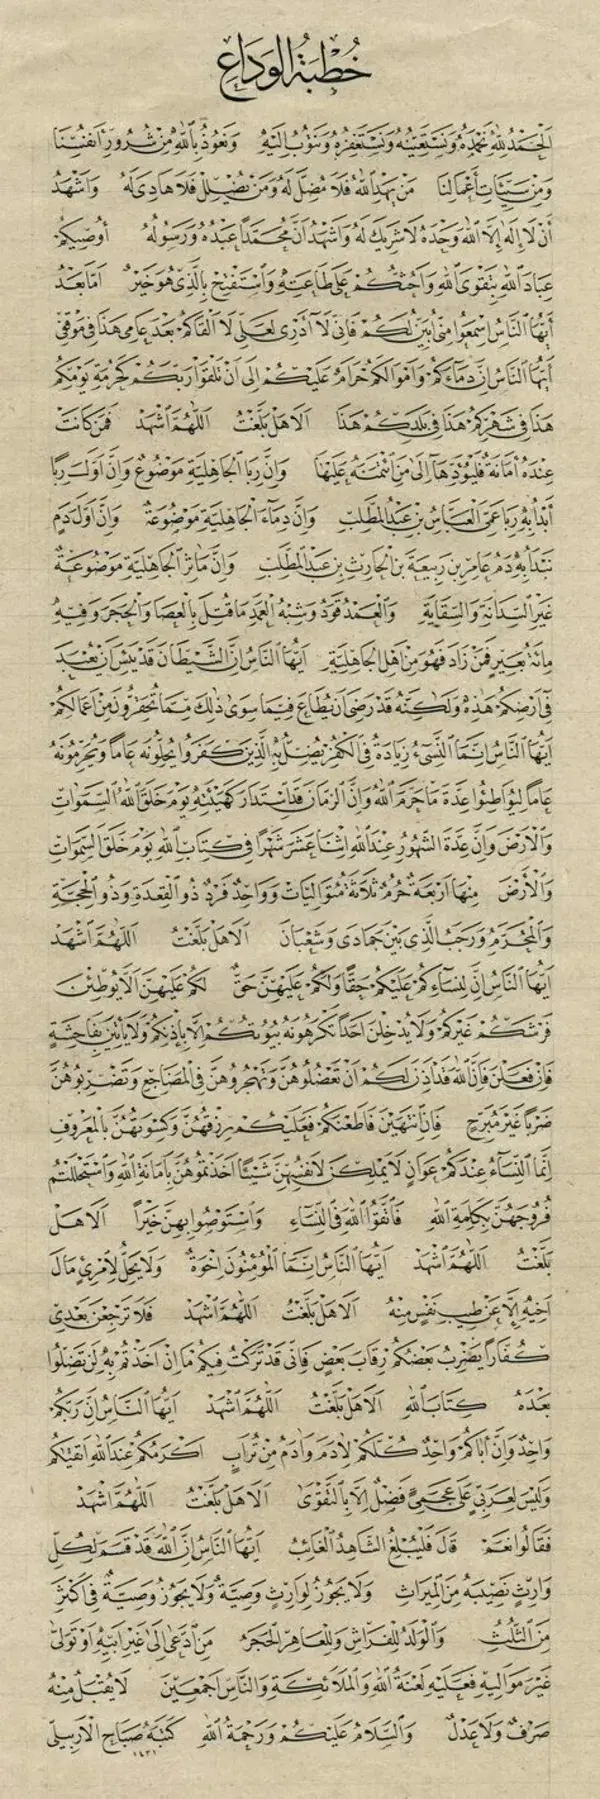 خُطْبَةُ الوَدَاعِ
الحَمْدُ للهِ نَحْمَدُهُ وَنَسْتَعِينُهُ وَنَسْتَغْفِرُهُ وَنَتُوبُ إِلَيْهِ وَنَعُوذُ بِاللهِ مِنْ شُرُورِ أَنْفُسِنَا
وَمِنْ سَيِّئَاتِ أَعْمَالِنَا مَنْ يَهْدِ اللهُ فَلَا مُضِلَّ لَهُ وَمَنْ يُضْلِلْ فَلَا هَادِيَ لَهُ وَأَشْهَدُ
أَنْ لَا إِلَهَ إِلَّا اللهُ وَحْدَهُ لَا شَرِيكَ لَهُ وَأَشْهَدُ أَنَّ مُحَمَّدًا عَبْدُهُ وَرَسُولُهُ أُوصِيكُمْ
عِبَادَ اللهِ بِتَقْوَى اللهِ وَأَحُثُّكُمْ عَلَى طَاعَتِهِ وَأَسْتَفْتِحُ بِالَّذِي هُوَ خَيْرٌ أَمَّا بَعْدُ
أَيُّهَا النَّاسُ اسْمَعُوا مِنِّي أُبَيِّنُ لَكُمْ فَإِنِّي لَا أَدْرِي لَعَلِّي لَا أَلْقَاكُمْ بَعْدَ عَامِي هَذَا فِي مَوْقِفِي
أَيُّهَا النَّاسُ إِنَّ دِمَاءَكُمْ وَأَمْوَالَكُمْ حَرَامٌ عَلَيْكُمْ إِلَى أَنْ تَلْقَوْا رَبَّكُمْ كَحُرْمَةِ يَوْمِكُمْ
هَذَا فِي شَهْرِكُمْ هَذَا فِي بَلَدِكُمْ هَذَا أَلَا هَلْ بَلَّغْتُ اللَّهُمَّ اشْهَدْ فَمَنْ كَانَتْ
عِنْدَهُ أَمَانَةٌ فَلْيُؤَدِّهَا إِلَى مَنِ ائْتَمَنَهُ عَلَيْهَا وَإِنَّ رِبَا الجَاهِلِيَّةِ مَوْضُوعٌ وَإِنَّ أَوَّلَ رِبًا
أَبْدَأُ بِهِ رِبَا عَمِّي العَبَّاسِ بْنِ عَبْدِ المُطَّلِبِ وَإِنَّ دِمَاءَ الجَاهِلِيَّةِ مَوْضُوعَةٌ وَإِنَّ أَوَّلَ دَمٍ
نَبْدَأُ بِهِ دَمُ عَامِرِ بْنِ رَبِيعَةَ بْنِ الحَارِثِ بْنِ عَبْدِ المُطَّلِبِ وَإِنَّ مَآثِرَ الجَاهِلِيَّةِ مَوْضُوعَةٌ
غَيْرَ السِّدَانَةِ وَالسِّقَايَةِ وَالعَمْدُ قَوَدٌ وَشِبْهُ العَمْدِ مَا قُتِلَ بِالعَصَا وَالحَجَرِ وَفِيهِ
مِائَةُ بَعِيرٍ فَمَنْ زَادَ فَهُوَ مِنْ أَهْلِ الجَاهِلِيَّةِ أَيُّهَا النَّاسُ إِنَّ الشَّيْطَانَ قَدْ يَئِسَ أَنْ يُعْبَدَ
فِي أَرْضِكُمْ هَذِهِ وَلَكِنَّهُ قَدْ رَضِيَ أَنْ يُطَاعَ فِيمَا سِوَى ذَلِكَ مِمَّا تُحَقِّرُونَ مِنْ أَعْمَالِكُمْ
أَيُّهَا النَّاسُ إِنَّمَا النَّسِيءُ زِيَادَةٌ فِي الكُفْرِ يُضَلُّ بِهِ الَّذِينَ كَفَرُوا يُحِلُّونَهُ عَامًا وَيُحَرِّمُونَهُ
عَامًا لِيُوَاطِئُوا عِدَّةَ مَا حَرَّمَ اللهُ وَإِنَّ الزَّمَانَ قَدِ اسْتَدَارَ كَهَيْئَتِهِ يَوْمَ خَلَقَ اللهُ السَّمَوَاتِ
وَالأَرْضَ وَإِنَّ عِدَّةَ الشُّهُورِ عِنْدَ اللهِ اثْنَا عَشَرَ شَهْرًا فِي كِتَابِ اللهِ يَوْمَ خَلَقَ السَّمَوَاتِ
وَالأَرْضَ مِنْهَا أَرْبَعَةٌ حُرُمٌ ثَلَاثَةٌ مُتَوَالِيَاتٌ وَوَاحِدٌ فَرْدٌ ذُو القِعْدَةِ وَذُو الحِجَّةِ
وَالمُحَرَّمُ وَرَجَبُ الَّذِي بَيْنَ جُمَادَى وَشَعْبَانَ أَلَا هَلْ بَلَّغْتُ اللَّهُمَّ اشْهَدْ
أَيُّهَا النَّاسُ إِنَّ لِنِسَاءِكُمْ عَلَيْكُمْ حَقًّا وَلَكُمْ عَلَيْهِنَّ حَقٌّ لَكُمْ عَلَيْهِنَّ أَلَّا يُوطِئْنَ
فُرُشَكُمْ غَيْرَكُمْ وَلَا يُدْخِلْنَ أَحَدًا تَكْرَهُونَهُ بُيُوتَكُمْ إِلَّا بِإِذْنِكُمْ وَلَا يَأْتِينَ بِفَاحِشَةٍ
فَإِنْ فَعَلْنَ فَإِنَّ اللهَ قَدْ أَذِنَ لَكُمْ أَنْ تَعْضُلُوهُنَّ وَتَهْجُرُوهُنَّ فِي المَضَاجِعِ وَتَضْرِبُوهُنَّ
ضَرْبًا غَيْرَ مُبَرِّحٍ فَإِنِ انْتَهَيْنَ فَأَطَعْنَكُمْ فَعَلَيْكُمْ رِزْقُهُنَّ وَكِسْوَتُهُنَّ بِالمَعْرُوفِ
إِنَّمَا النِّسَاءُ عِنْدَكُمْ عَوَانٍ لَا يَمْلِكْنَ لِأَنْفُسِهِنَّ شَيْئًا أَخَذْتُمُوهُنَّ بِأَمَانَةِ اللهِ وَاسْتَحْلَلْتُمْ
فُرُوجَهُنَّ بِكَلِمَةِ اللهِ فَاتَّقُوا اللهَ فِي النِّسَاءِ وَاسْتَوْصُوا بِهِنَّ خَيْرًا أَلَا هَلْ
بَلَّغْتُ اللَّهُمَّ اشْهَدْ أَيُّهَا النَّاسُ إِنَّمَا المُؤْمِنُونَ إِخْوَةٌ وَلَا يَحِلُّ لِامْرِئٍ مَالُ
أَخِيهِ إِلَّا عَنْ طِيبِ نَفْسٍ مِنْهُ أَلَا هَلْ بَلَّغْتُ اللَّهُمَّ اشْهَدْ فَلَا تَرْجِعُنَّ بَعْدِي
كُفَّارًا يَضْرِبُ بَعْضُكُمْ رِقَابَ بَعْضٍ فَإِنِّي قَدْ تَرَكْتُ فِيكُمْ مَا إِنْ أَخَذْتُمْ بِهِ لَنْ تَضِلُّوا
بَعْدَهُ كِتَابَ اللهِ أَلَا هَلْ بَلَّغْتُ اللَّهُمَّ اشْهَدْ أَيُّهَا النَّاسُ إِنَّ رَبَّكُمْ
وَاحِدٌ وَإِنَّ أَبَاكُمْ وَاحِدٌ كُلُّكُمْ لِآدَمَ وَآدَمُ مِنْ تُرَابٍ أَكْرَمُكُمْ عِنْدَ اللهِ أَتْقَاكُمْ
وَلَيْسَ لِعَرَبِيٍّ عَلَى عَجَمِيٍّ فَضْلٌ إِلَّا بِالتَّقْوَى أَلَا هَلْ بَلَّغْتُ اللَّهُمَّ اشْهَدْ
فَقَالُوا نَعَمْ قَالَ فَلْيُبَلِّغِ الشَّاهِدُ الغَائِبَ أَيُّهَا النَّاسُ إِنَّ اللهَ قَدْ قَسَمَ لِكُلِّ
وَارِثٍ نَصِيبَهُ مِنَ المِيرَاثِ وَلَا يَجُوزُ لِوَارِثٍ وَصِيَّةٌ وَلَا يَجُوزُ وَصِيَّةٌ فِي أَكْثَرَ
مِنَ الثُّلُثِ وَالوَلَدُ لِلْفِرَاشِ وَلِلْعَاهِرِ الحَجَرُ مَنِ ادَّعَى إِلَى غَيْرِ أَبِيهِ أَوْ تَوَلَّى
غَيْرَ مَوَالِيهِ فَعَلَيْهِ لَعْنَةُ اللهِ وَالمَلَائِكَةِ وَالنَّاسِ أَجْمَعِينَ لَا يُقْبَلُ مِنْهُ
صَرْفٌ وَلَا عَدْلٌ وَالسَّلَامُ عَلَيْكُمْ وَرَحْمَةُ اللهِ كَتَبَهُ صَبَاح الأَرْبِيلِي
١٤٣١